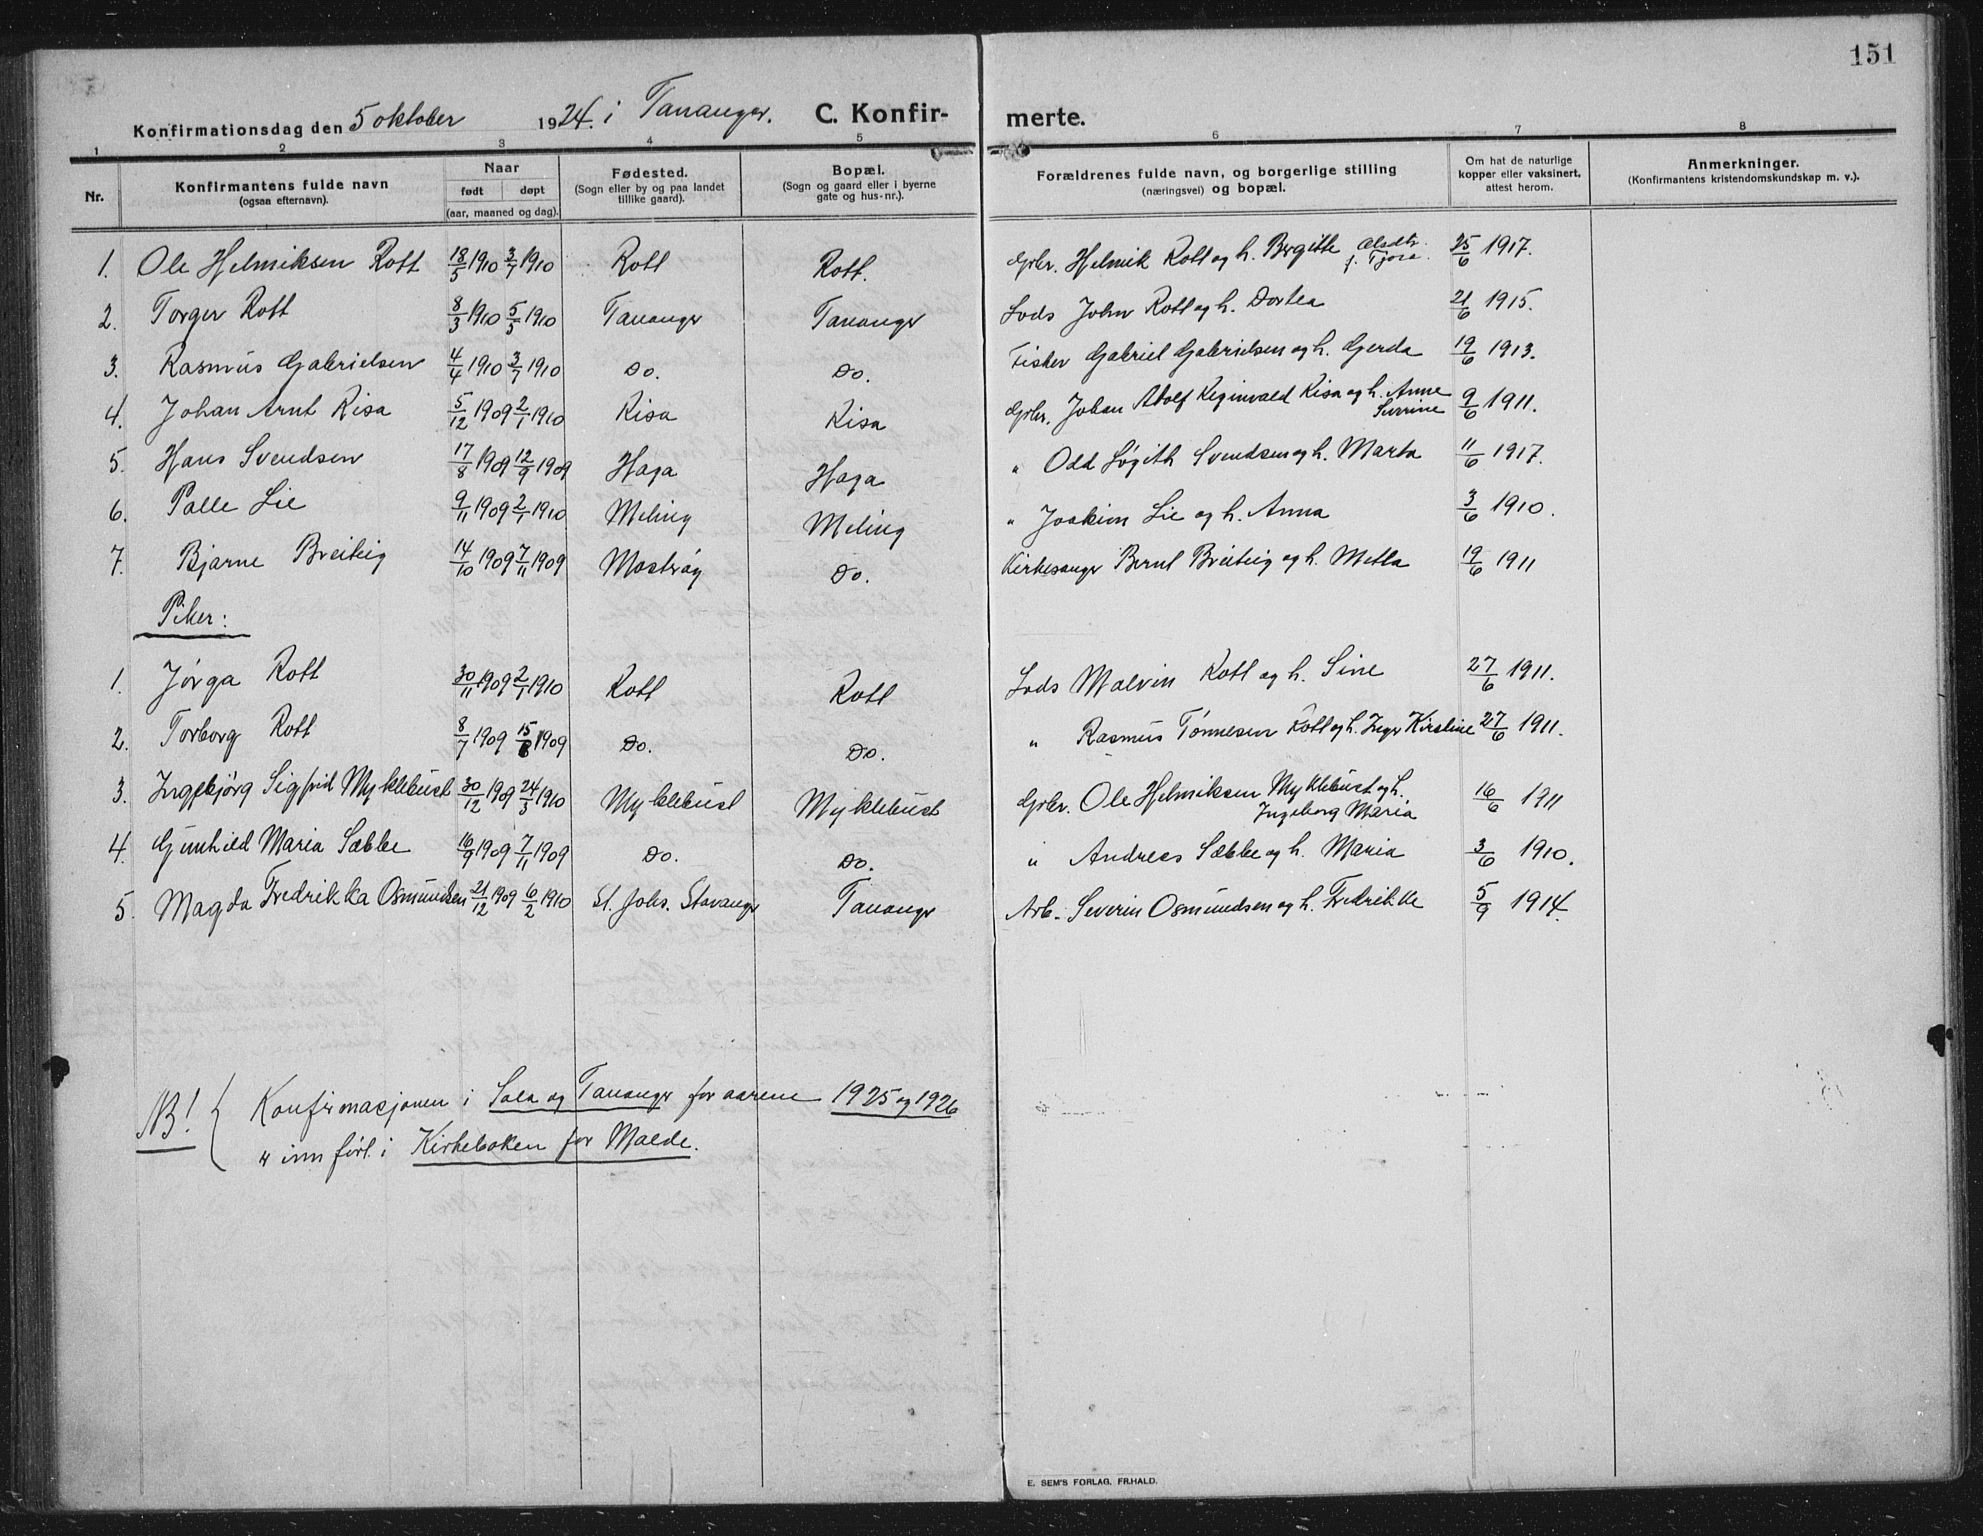 151
Konfirmationsdag den 5 oktober 1924. i Tananger. C. Konfir- merte.
1 2 3 4 5 6 7 8
Nr. Konfirmantens fulde navn (ogsaa efternavn). Naar født døpt (aar, maaned og dag). Fødested. (Sogn eller by og paa landet tillike gaard). Bopæl. (Sogn og gaard eller i byerne gate og hus-nr.). Forældrenes fulde navn, og borgerlige stilling (næringsvei) og bopæl. Om hat de naturlige kopper eller vaksinert, attest herom. Anmerkninger. (Konfirmantens kristendomskundskap m. v.).
1. Ole Helmiksen Rott 18/5 1910 3/7 1910 Rott Rott. Grbr. Helmik Rott og h. Bergitte Olsdtr. f. Tjora. 25/6 1917.
2. Torger Rott 8/3 1910 5/5 1910 Tananger Tananger Lods John Rott og h. Dortea 21/6 1915.
3. Rasmus Gabrielsen 4/4 1910 3/7 1910 Do. Do. Fisker Gabriel Gabrielsen og h. Gerda 19/6 1913.
4. Johan Arnt Risa 5/12 1909 2/1 1910 Risa Risa Grbr. Johan Adolf Reginvald Risa og h. Anne Serrine 9/6 1911.
5. Hans Svendsen 17/8 1909 12/9 1909 Haga Haga " Odd Løgith Svendsen og h. Marta 11/6 1917.
6. Palle Lie 9/11 1909 2/1 1910 Meling Meling " Joakim Lie og h. Anna 3/6 1910.
7. Bjarne Breiteig 14/10 1909 7/11 1909 Mosterøy Do. Kirkesanger Bernt Breiteig og h. Metta 19/6 1911
Piker:
1. Jørga Rott 30/11 1909 2/1 1910 Rott Rott Lods Malvin Rott og h. Sine 27/6 1911.
2. Torborg Rott 8/7 1909 15/8 1909 Do. Do. " Rasmus Tønnesen Rott og h. Inger Kirstine 27/6 1911.
3. Ingebjørg Sigfrid Myklebust 30/12 1909 24/3 1910 Myklebust Myklebust Grbr. Ole Helmiksen Myklebust og h. Ingeborg Maria 16/6 1911
4. Gunhild Maria Sæbbe 16/9 1909 7/11 1909 Do. Do. " Andreas Sæbbe og h. Maria 3/6 1910.
5. Magda Fredrikka Osmundsen 21/12 1909 6/2 1910 St. Johs. Stavanger Tananger Arb. Severin Osmundsen og h. Fredrikke 5/9 1914.
NB! Konfirmasjonen i Sola og Tananger for aarene 1925 og 1926
er innført i Kirkeboken for Malde.
E. SEM'S FORLAG. FR.HALD.